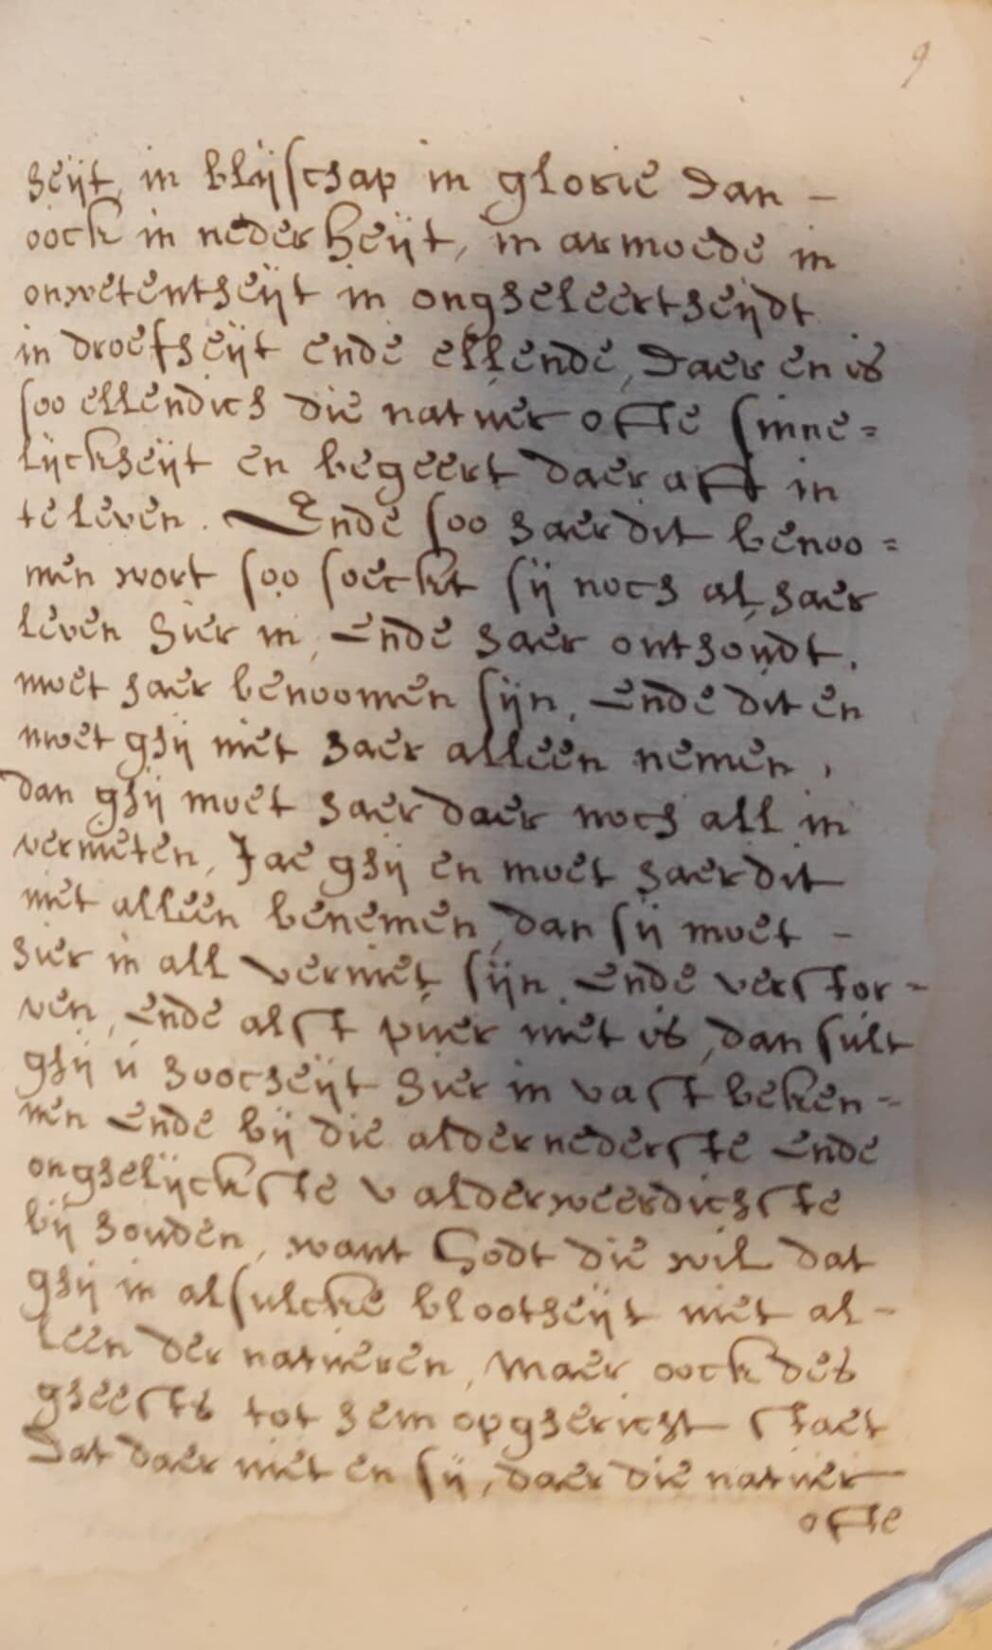 9
heijt, in blijschap in glorie dan -
oock in nederheijt, in armoede in
onwetentheijt in ongheleertheijdt
in droefheijt ende ellende, daer en is
soo ellendich die natuer ofte sinne=
lijckheijt en begeert daer aft in
te leven. Ende soo haer dit benoo=
men wort soo soeckt sij noch al haer
leven hier in, ende haer onthoudt,
moet haer benoomen sijn, ende dit en
moet ghij niet haer alleen nemen,
dan ghij moet haer daer noch all in
vernieten, Jae ghij en moet haer dit
niet alleen benemen, dan sij moet -
hier in all verniet sijn, ende verstor-
ven, ende alst puer niet is, dan sult
ghij u hoocheijt hier in vast beken=
nen ende bij die aldernederste ende
onghelijckste v alderweerdichste
bij houden, want Godt die wil dat
ghij in alsulcke blootheijt niet al-
leen der natueren, maer oock des
gheests tot hem opghericht staet
Dat daer niet en sij, daer die natuer
ofte